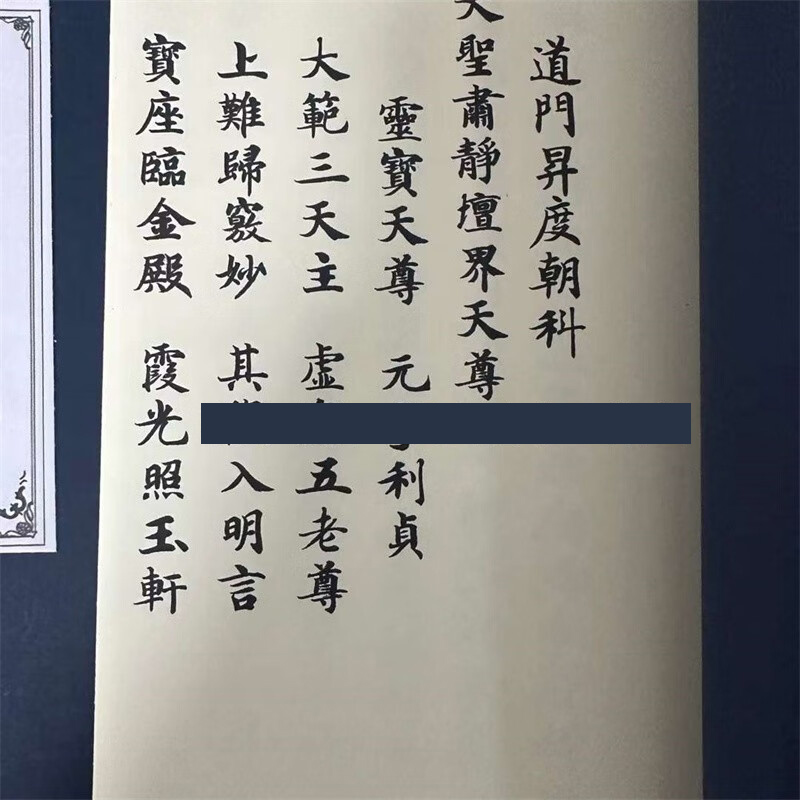 道門昇度朝科
聖肅靜壇界天尊
靈寶天尊 元利貞
大範三天主 虛五老尊
上難歸竅妙 其入明言
寶座臨金殿 霞光照玉軒